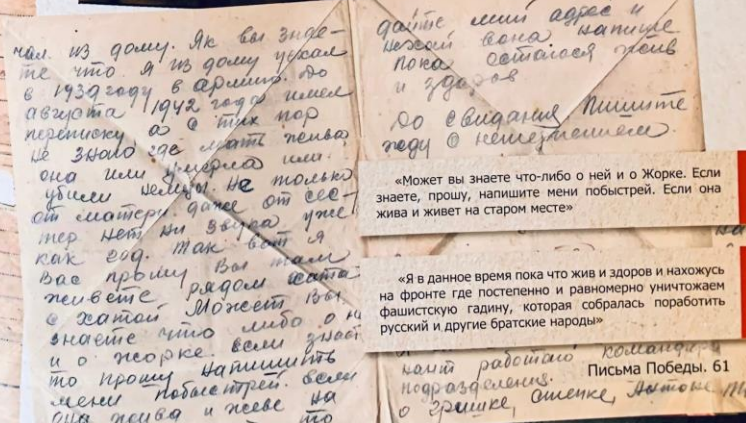 чал. из дому. Як вы знае-
те что. Я из дому уехал
в 1939 году в армию. До
августа 1942 года имел
переписку а с тих пор
не знаю где мать жива,
она или умерла или
убили немцы. не только
от матери даже от сес-
тер нет ни звука уже
как год. Так вот я
Вас прошу Вы там
живете рядом хата
с хатой Может Вы
знаете что либо о н
и о жорке. если знаете
то прошу напишить
мени побыстрей. если
она жива и живе на
то
дайте мий адрес и
нехай вона напише
пока остался жив
и здоров
До свидания Пишите
жду с нетерпением.
«Может вы знаете что-либо о ней и о Жорке. Если
знаете, прошу, напишите мени побыстрей. Если она
жива и живет на старом месте»
«Я в данное время пока что жив и здоров и нахожусь
на фронте где постепенно и равномерно уничтожаем
фашистскую гадину, которая собралась поработить
русский и другие братские народы»
нант работаю командира
подразделения.
Письма Победы. 61
о гришке,